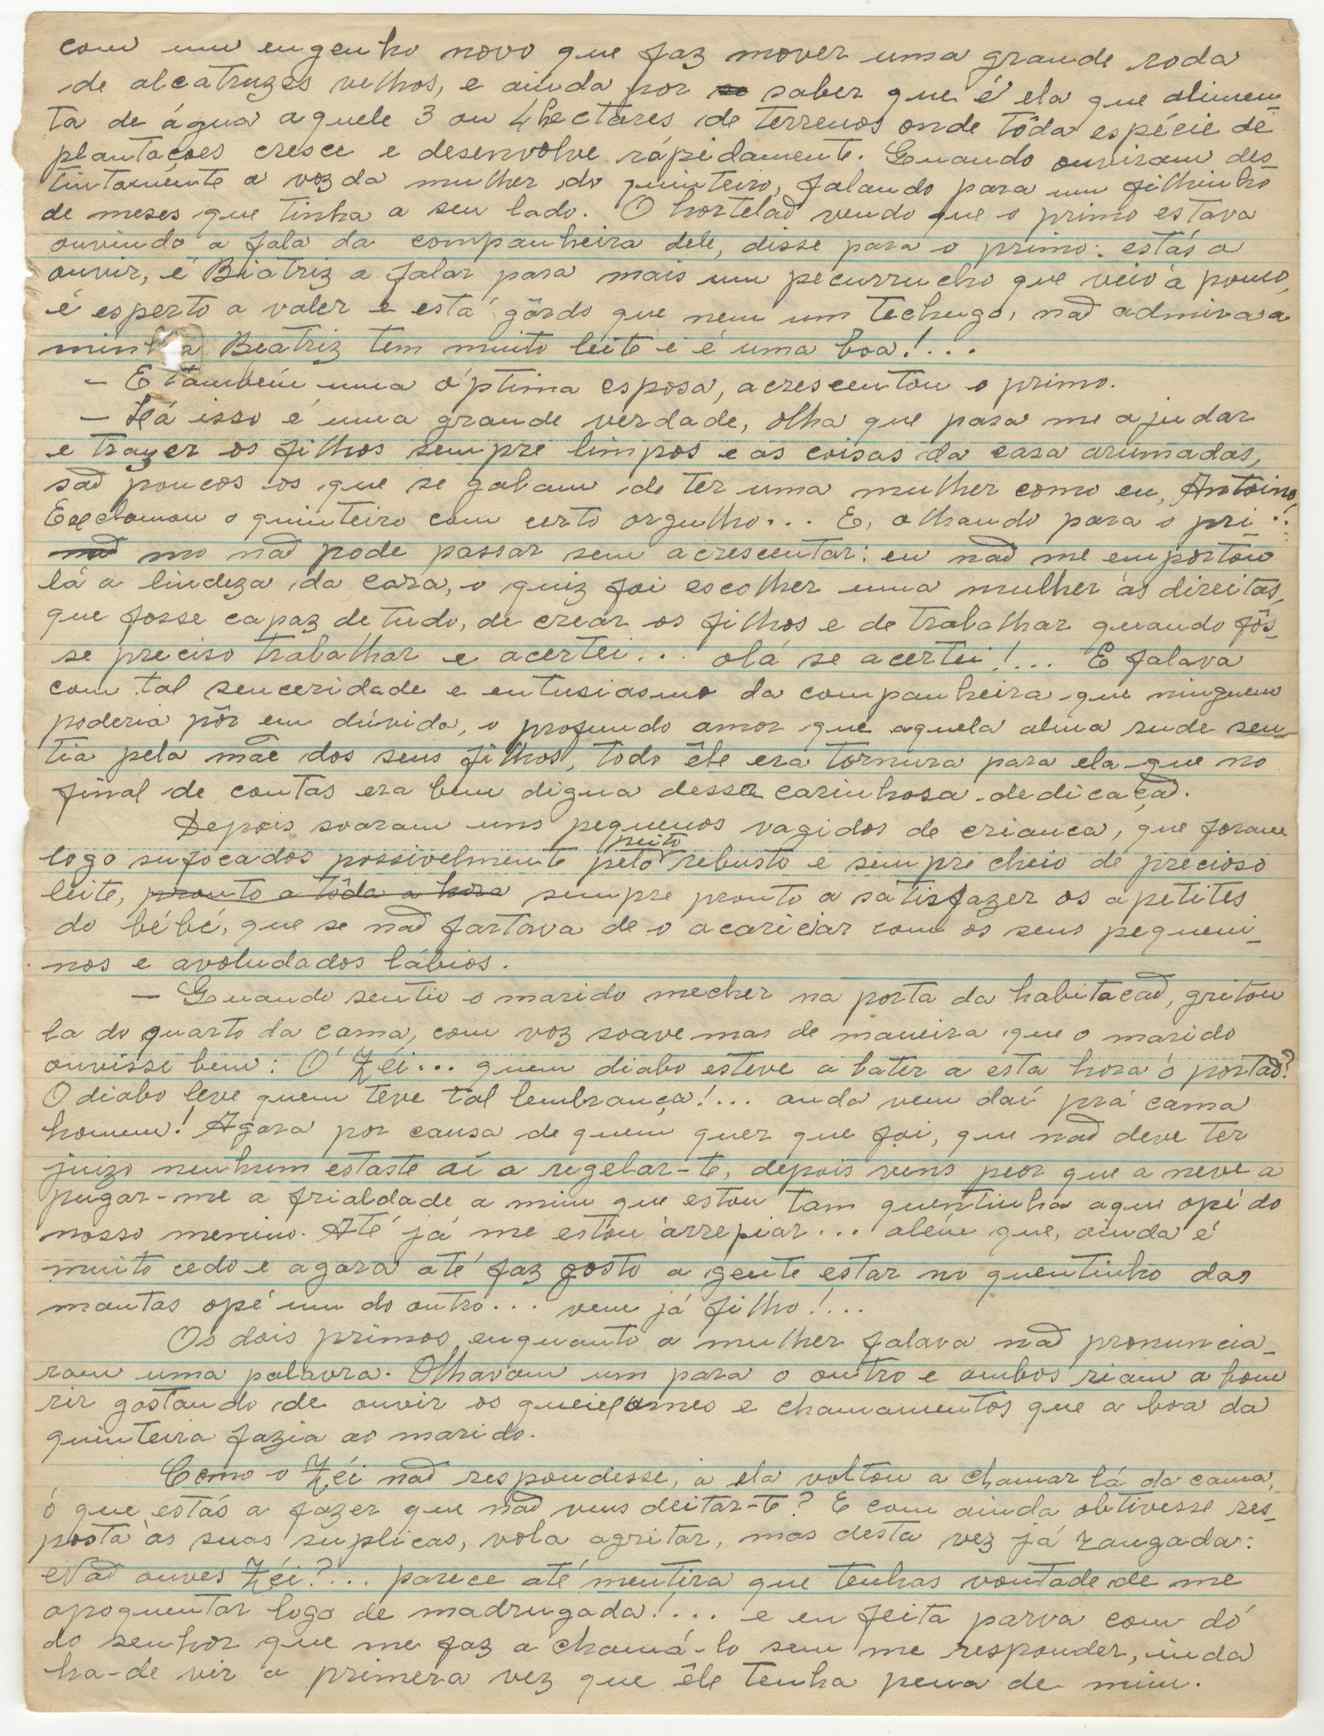 com um engenho novo que faz mover uma grande roda
de alcatruzes velhos, e ainda por se saber que é ela que alimen-
ta de água aquele 3 ou 4 hectares de terrenos onde tôda espécie de
plantações cresce e desenvolve rápidamente. Quando ouviram des-
tintamente a voz da mulher do quinteiro, falando para um filhinho
de meses que tinha a seu lado. O hortelaõ vendo que o primo estava
ouvindo a fala da companheira dele, disse para o primo: estás a
ouvir, é Biatriz a falar para mais um pecurrucho que veio á pouco,
é esperto a valer e está gôrdo que nem um techugo, naõ admira a
minha Beatriz tem muito leite e é uma boa!...
— E também uma óptima esposa, acrescentou o primo.
— Lá isso é uma grande verdade, olha que para me ajudar
e trazer os filhos sempre limpos e as coisas da casa arumadas,
saõ poucos os que se gabam de ter uma mulher como eu, Antoino,
Exclamou o quinteiro com certo orgulho... E, olhando para o pri-
naõ mo naõ pode passar sem acrescentar: eu naõ me emportou
lá a lindeza da cara, o quiz foi escolher uma mulher ás direitas,
que fosse capaz de tudo, de crear os filhos e de trabalhar quando fôs-
se preciso trabalhar e acertei... ola se acertei!... E falava
com tal senceridade e entusiasmo da companheira que ninguem
poderia pôr em dúvida, o profundo amor que aquela alma rude sen-
tia pela mãe dos seus filhos, todo êle era tornura para ela que no
final de contas era bem digna dessa carinhosa dedicaçaõ.
Depois soaram uns pequenos vagidos de criança, que foram
peito
logo sufocados possivelmente pelo rebusto e sempre cheio de precioso
leite, pronto a tôda a hora sempre pronto a satisfazer os apetites
do bébé, que se naõ fartava de o acariciar com os seus pequeni-
nos e avoludados lábios.
— Quando sentio o marido mecher na porta da habitacaõ, gritou
la do quarto da cama, com voz soave mas de maneira que o marido
ouvisse bem: Ó Zéi... quem diabo esteve a bater a esta hora ó portaõ?
O diabo leve quem teve tal lembrança!... anda vem daí prá cama
homem! Agora por causa de quem quer que foi, que naõ deve ter
juizo nenhum estaste aí a regelar-te, depois vens peor que a neve a
pugar-me a frialdade a mim que estou tam quentinha aqui opé do
nosso menino. Até já me estou àrrepiar... além que, ainda é
muito cedo e agora até faz gosto a gente estar no quentinho das
mantas opé um do outro... vem já filho!...
Os dois primos, enquanto a mulher falava naõ pronuncia-
ram uma palavra. Olhavam um para o outro e ambos riam a bom
rir gostando de ouvir os queixumes e chamamentos que a boa da
quinteira fazia ao marido.
Como o Zéi naõ respondesse, a ela voltou a chamar lá da cama,
ó que estás a fazer que naõ vens deitar-te? E com ainda obtivesse res-
posta ás suas suplicas, vola agritar, mas desta vez já zangada:
Naõ ouves Zéi?... parece até mentira que tenhas vontade de me
apoquentar logo de madrugada!... e eu feita parva com dó
do senhor que me faz a chamá-lo sem me responder, inda
ha-de vir a primera vez que êle tenha pena de mim.